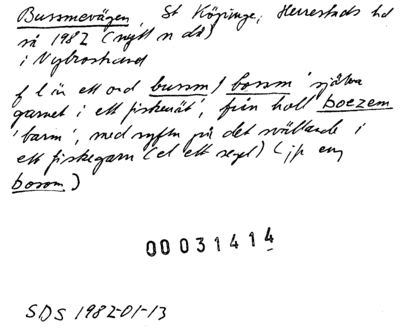 Bussmevägen, St Köpinge, Herrestads hd
så 1982 (nytt n då)
i Nybrostrand
f l är ett ord bussm / bossm 'själva
garnet i ett fiskenät', från holl boezem
'barm', med syftn på det svällande i
ett fiskegarn (el ett segel) (jfr eng
bosom)
00031414
SDS 1982-01-13